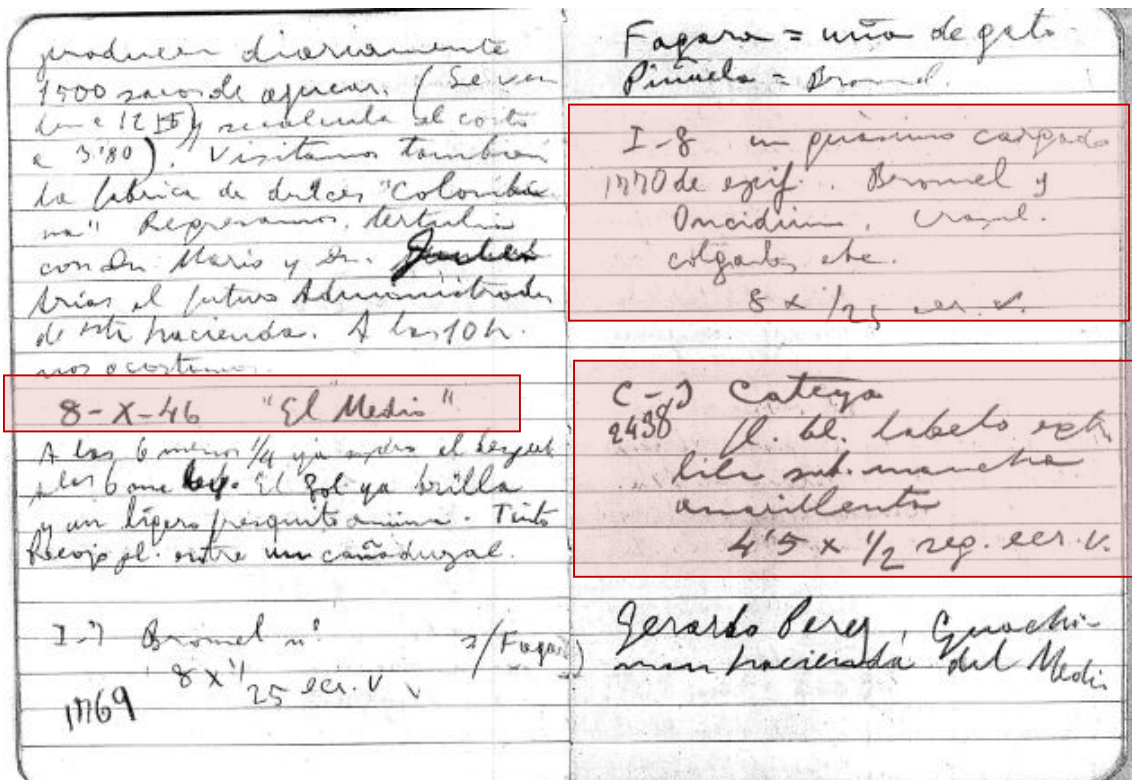 producen diariamente
1500 sacos de azucar. (Se ven
den a 12 y se calcula el costo
a 3'80). Visitamos tambien
la fabrica de dulces "Colombia
na" Regresamos, tertulia
con Dr. Mario y Dr.
Arias el futuro Administrador
de esta hacienda. A las 10 h.
nos acostamos.
8-X-46 "El Medio"
A las 6 menos 1/4 ya
a las 6 El Sol ya brilla
y un ligero fresquito anima. Tinto
Recojo pl. entre un cañaduzal.
I-7 Bromel nº s/(Fagara)
8 x 1/25 ecr. V
1769
Fagara = uña de gato.
Piñuela = Bromel.
I-8 un guasimo cargado
1770 de epif. Bromel y
Oncidium,
colgantes etc.
8 x 1/25 ecr. V.
C-7 Cateya
2438 fl. bl. labelo
lila mancha
amarillenta
4'5 x 1/2 seg. ecr. V.
Gerardo Perez, Guachi-
man hacienda del Medio